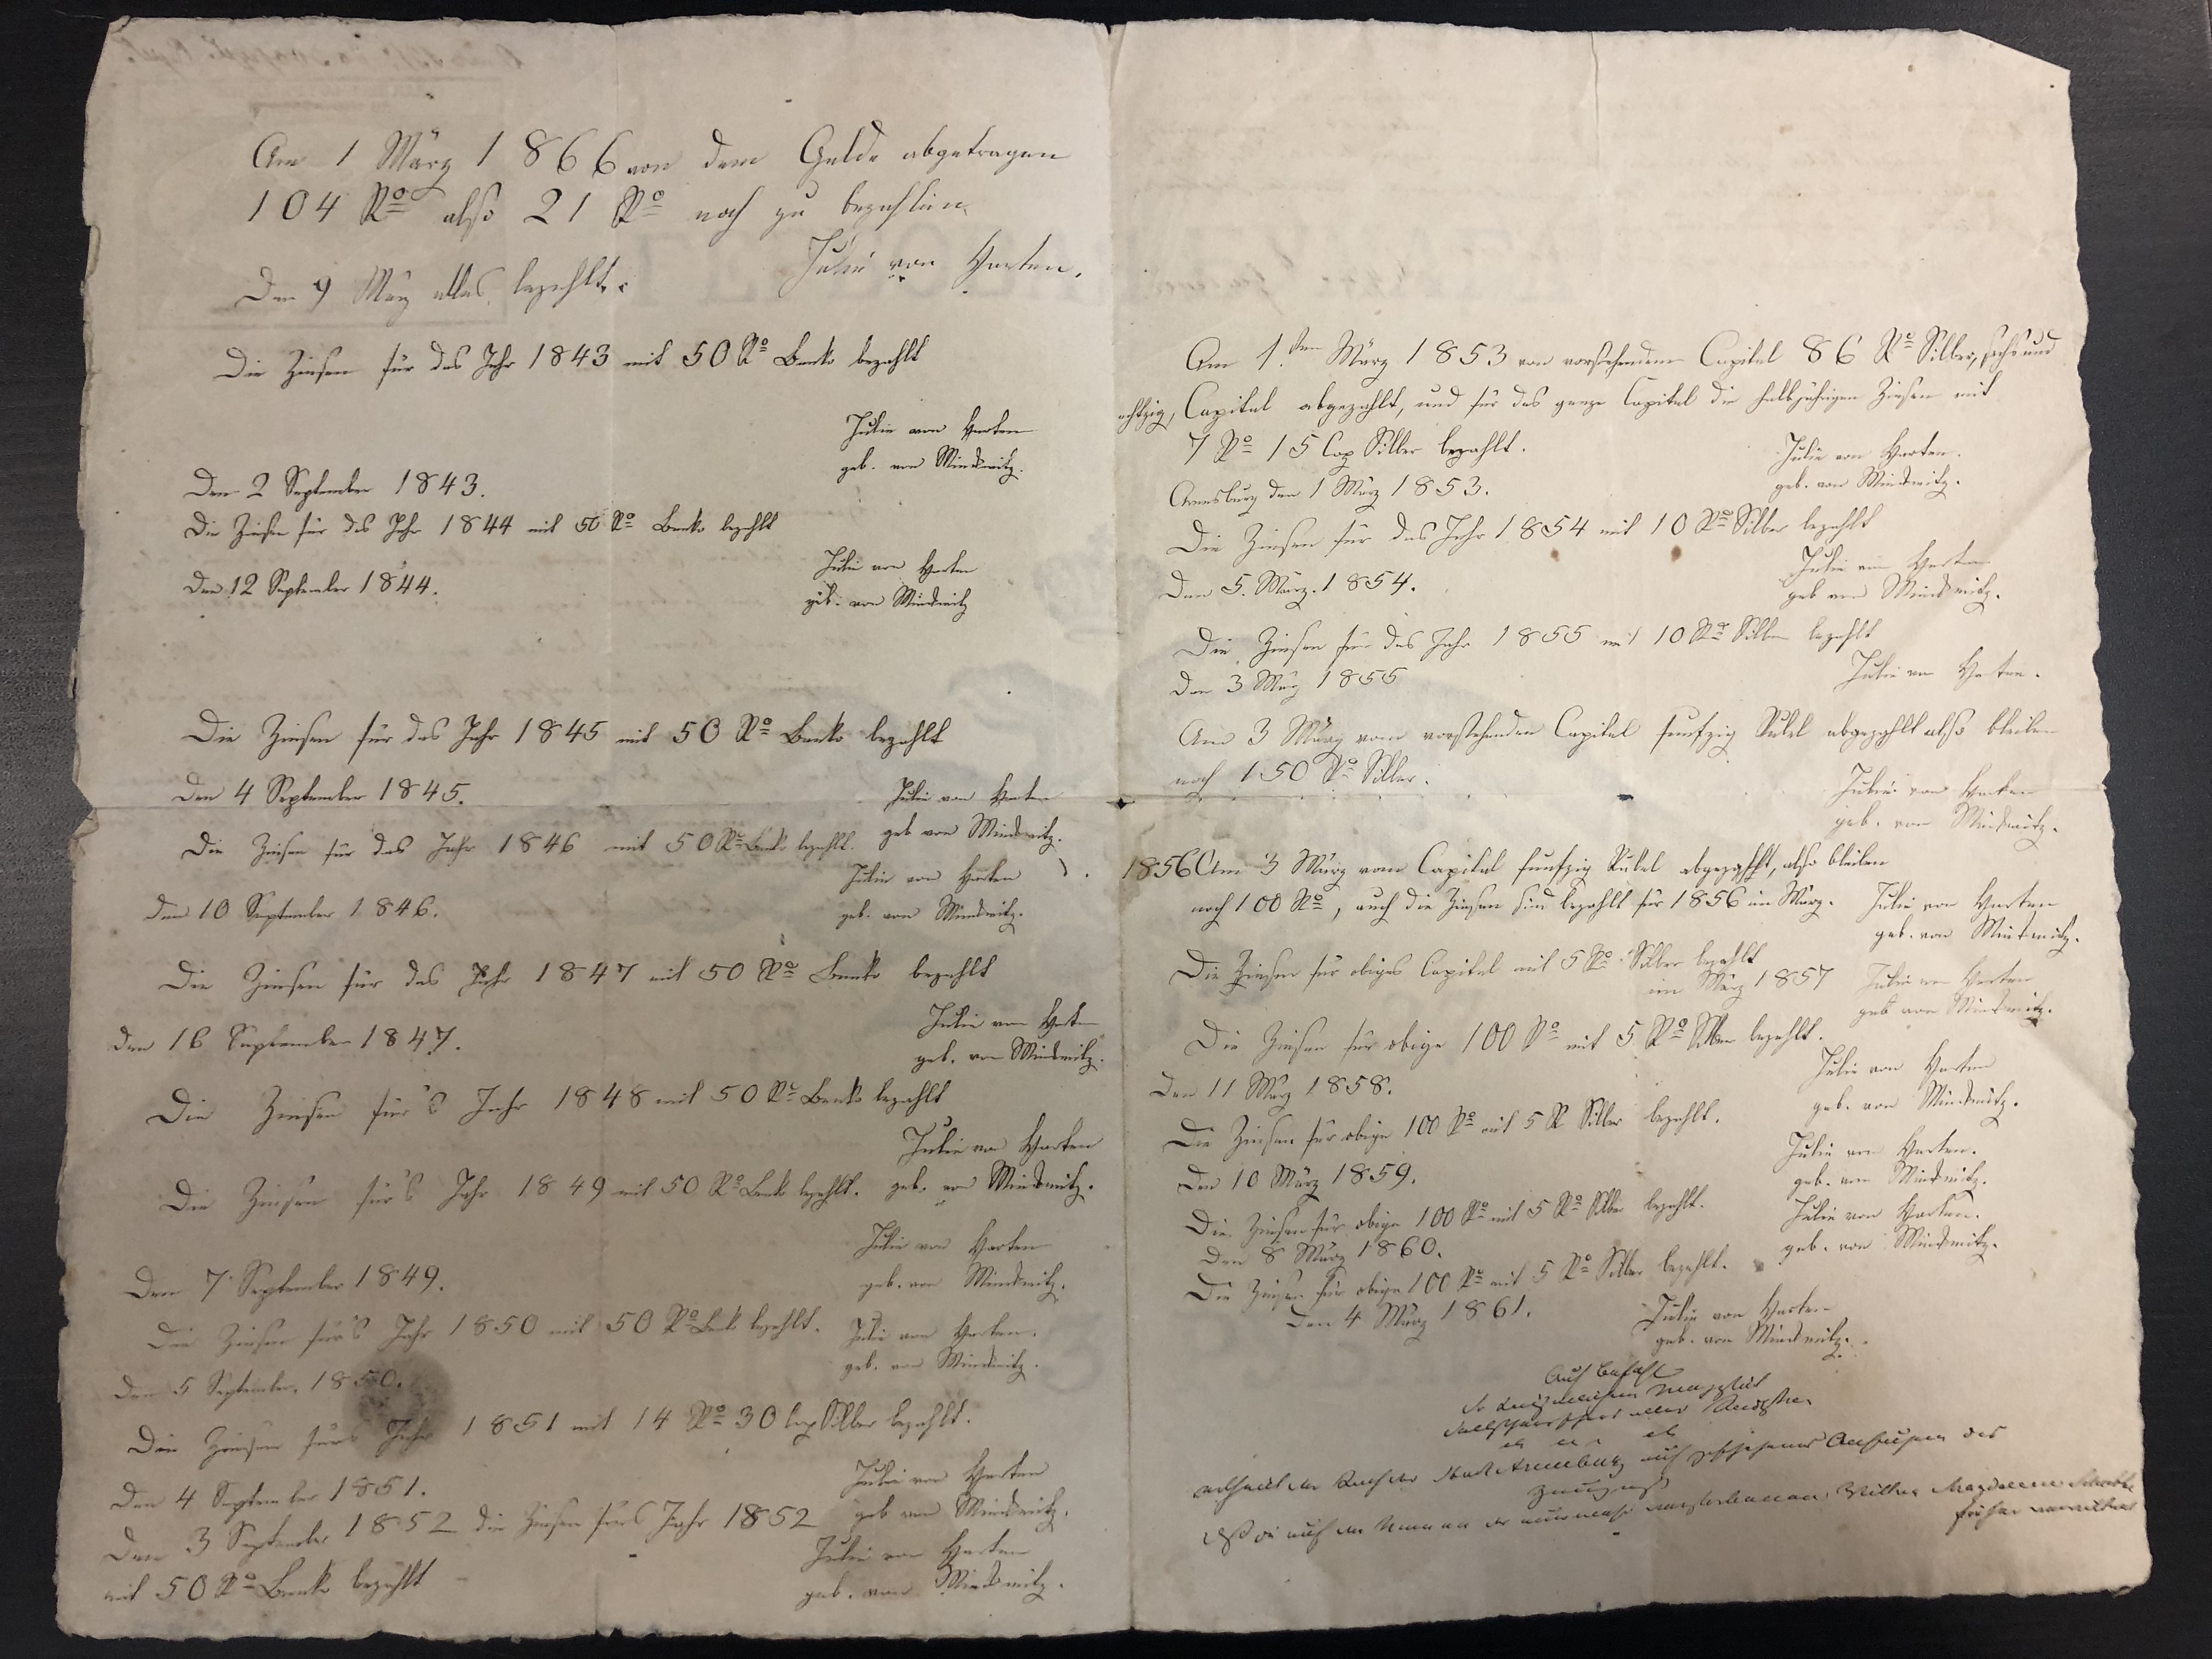 Am 1 März 1866 von dem Gelde abgetragen
104 Ro also 21 Ro noch zu bezahlen.
Julie von Harten.
Den 9 März alles bezahlt.
Die Zinsen für das Jahr 1843 mit 50 Ro Banko bezahlt
Julie von Harten
geb. von Mindwitz.
Den 2 September 1843.
Die Zinsen für das Jahr 1844 mit 50 Ro Banko bezahlt
Julie von Harten
geb. von Mindwitz
Den 12 September 1844.
Die Zinsen für das Jahr 1845 mit 50 Ro Banko bezahlt
Den 4 September 1845.
Julie von Harten
geb von Mindwitz.
Die Zinsen für das Jahr 1846 mit 50 Ro Banko bezahlt.
Julie von Harten
geb. von Mindwitz.
Den 10 September 1846.
Die Zinsen für das Jahr 1847 mit 50 Ro Banko bezahlt
Julie von Harten
geb. von Mindwitz.
Den 16 September 1847.
Die Zinsen für's Jahr 1848 mit 50 Ro Banko bezahlt
Julie von Harten
geb. von Mindwitz.
Die Zinsen für's Jahr 1849 mit 50 Ro Banko bezahlt.
Julie von Harten
geb. von Mindwitz.
Den 7 September 1849.
Die Zinsen für's Jahr 1850 mit 50 Ro Banko bezahlt.
Julie von Harten.
geb. von Mindwitz.
Den 5 September. 1850.
Die Zinsen fürs Jahr 1851 mit 14 Ro 30 Cop Silber bezahlt.
Julie von Harten
geb von Mindwitz.
Den 4 September 1851.
Den 3 September 1852 die Zinsen fürs Jahr 1852
mit 50 Ro Banko bezahlt
Julie von Harten
geb. von Mindwitz.
Am 1.ten März 1853 von vorstehendem Capital 86 Ro Silber, sechs und
achtzig, Capital abgezahlt, und für das ganze Capital die halbjährigen Zinsen mit
7 Ro 15 Cop Silber bezahlt.
Julie von Harten.
geb. von Mindwitz.
Arensburg den 1 März 1853.
Die Zinsen für das Jahr 1854 mit 10 Ro Silber bezahlt
Julie von Harten
geb von Mindwitz.
Den 5. März. 1854.
Die Zinsen für das Jahr 1855 mit 10 Ro Silber bezahlt
Den 3 März 1855
Julie von Harten.
Am 3 März vom vorstehenden Capital funfzig Rubel abgezahlt also bleiben
noch 150 Ro Silber.
Julie von Harten
geb. von Mindwitz.
1856 Am 3 März vom Capital funfzig Rubel abgezahlt, also bleiben
noch 100 Ro, auch die Zinsen sind bezahlt für 1856 im März.
Julie von Harten
geb. von Mindwitz.
Die Zinsen für obiges Capital mit 5 Ro Silber bezahlt
im März 1857
Julie von Harten
geb von Mindwitz.
Die Zinsen für obige 100 Ro mit 5 Ro Silber bezahlt.
Julie von Harten
geb. von Mindwitz.
Den 11 März 1858.
Die Zinsen für obige 100 Ro mit 5 R Silber bezahlt.
Julie von Harten.
geb. von Mindwitz.
Den 10 März 1859.
Die Zinsen für obige 100 Ro mit 5 Ro Silber bezahlt.
Julie von Harten.
geb. von Mindwitz.
Den 8 März 1860.
Die Zinsen für obige 100 Ro mit 5 Ro Silber bezahlt.
Den 4 März 1861.
Julie von Harten
geb. von Mindwitz.
Auf Befehl
Sr Kaiserlichen Majestät
Selbstherrschers aller Reussen
ertheilt der Rath der Stadt Arensburg auf geschehenes Ansuchen des
Zeugniß
daß die auf den Namen der nunmehr verstorbenen Wittwe Magdalena
früher verwittwet